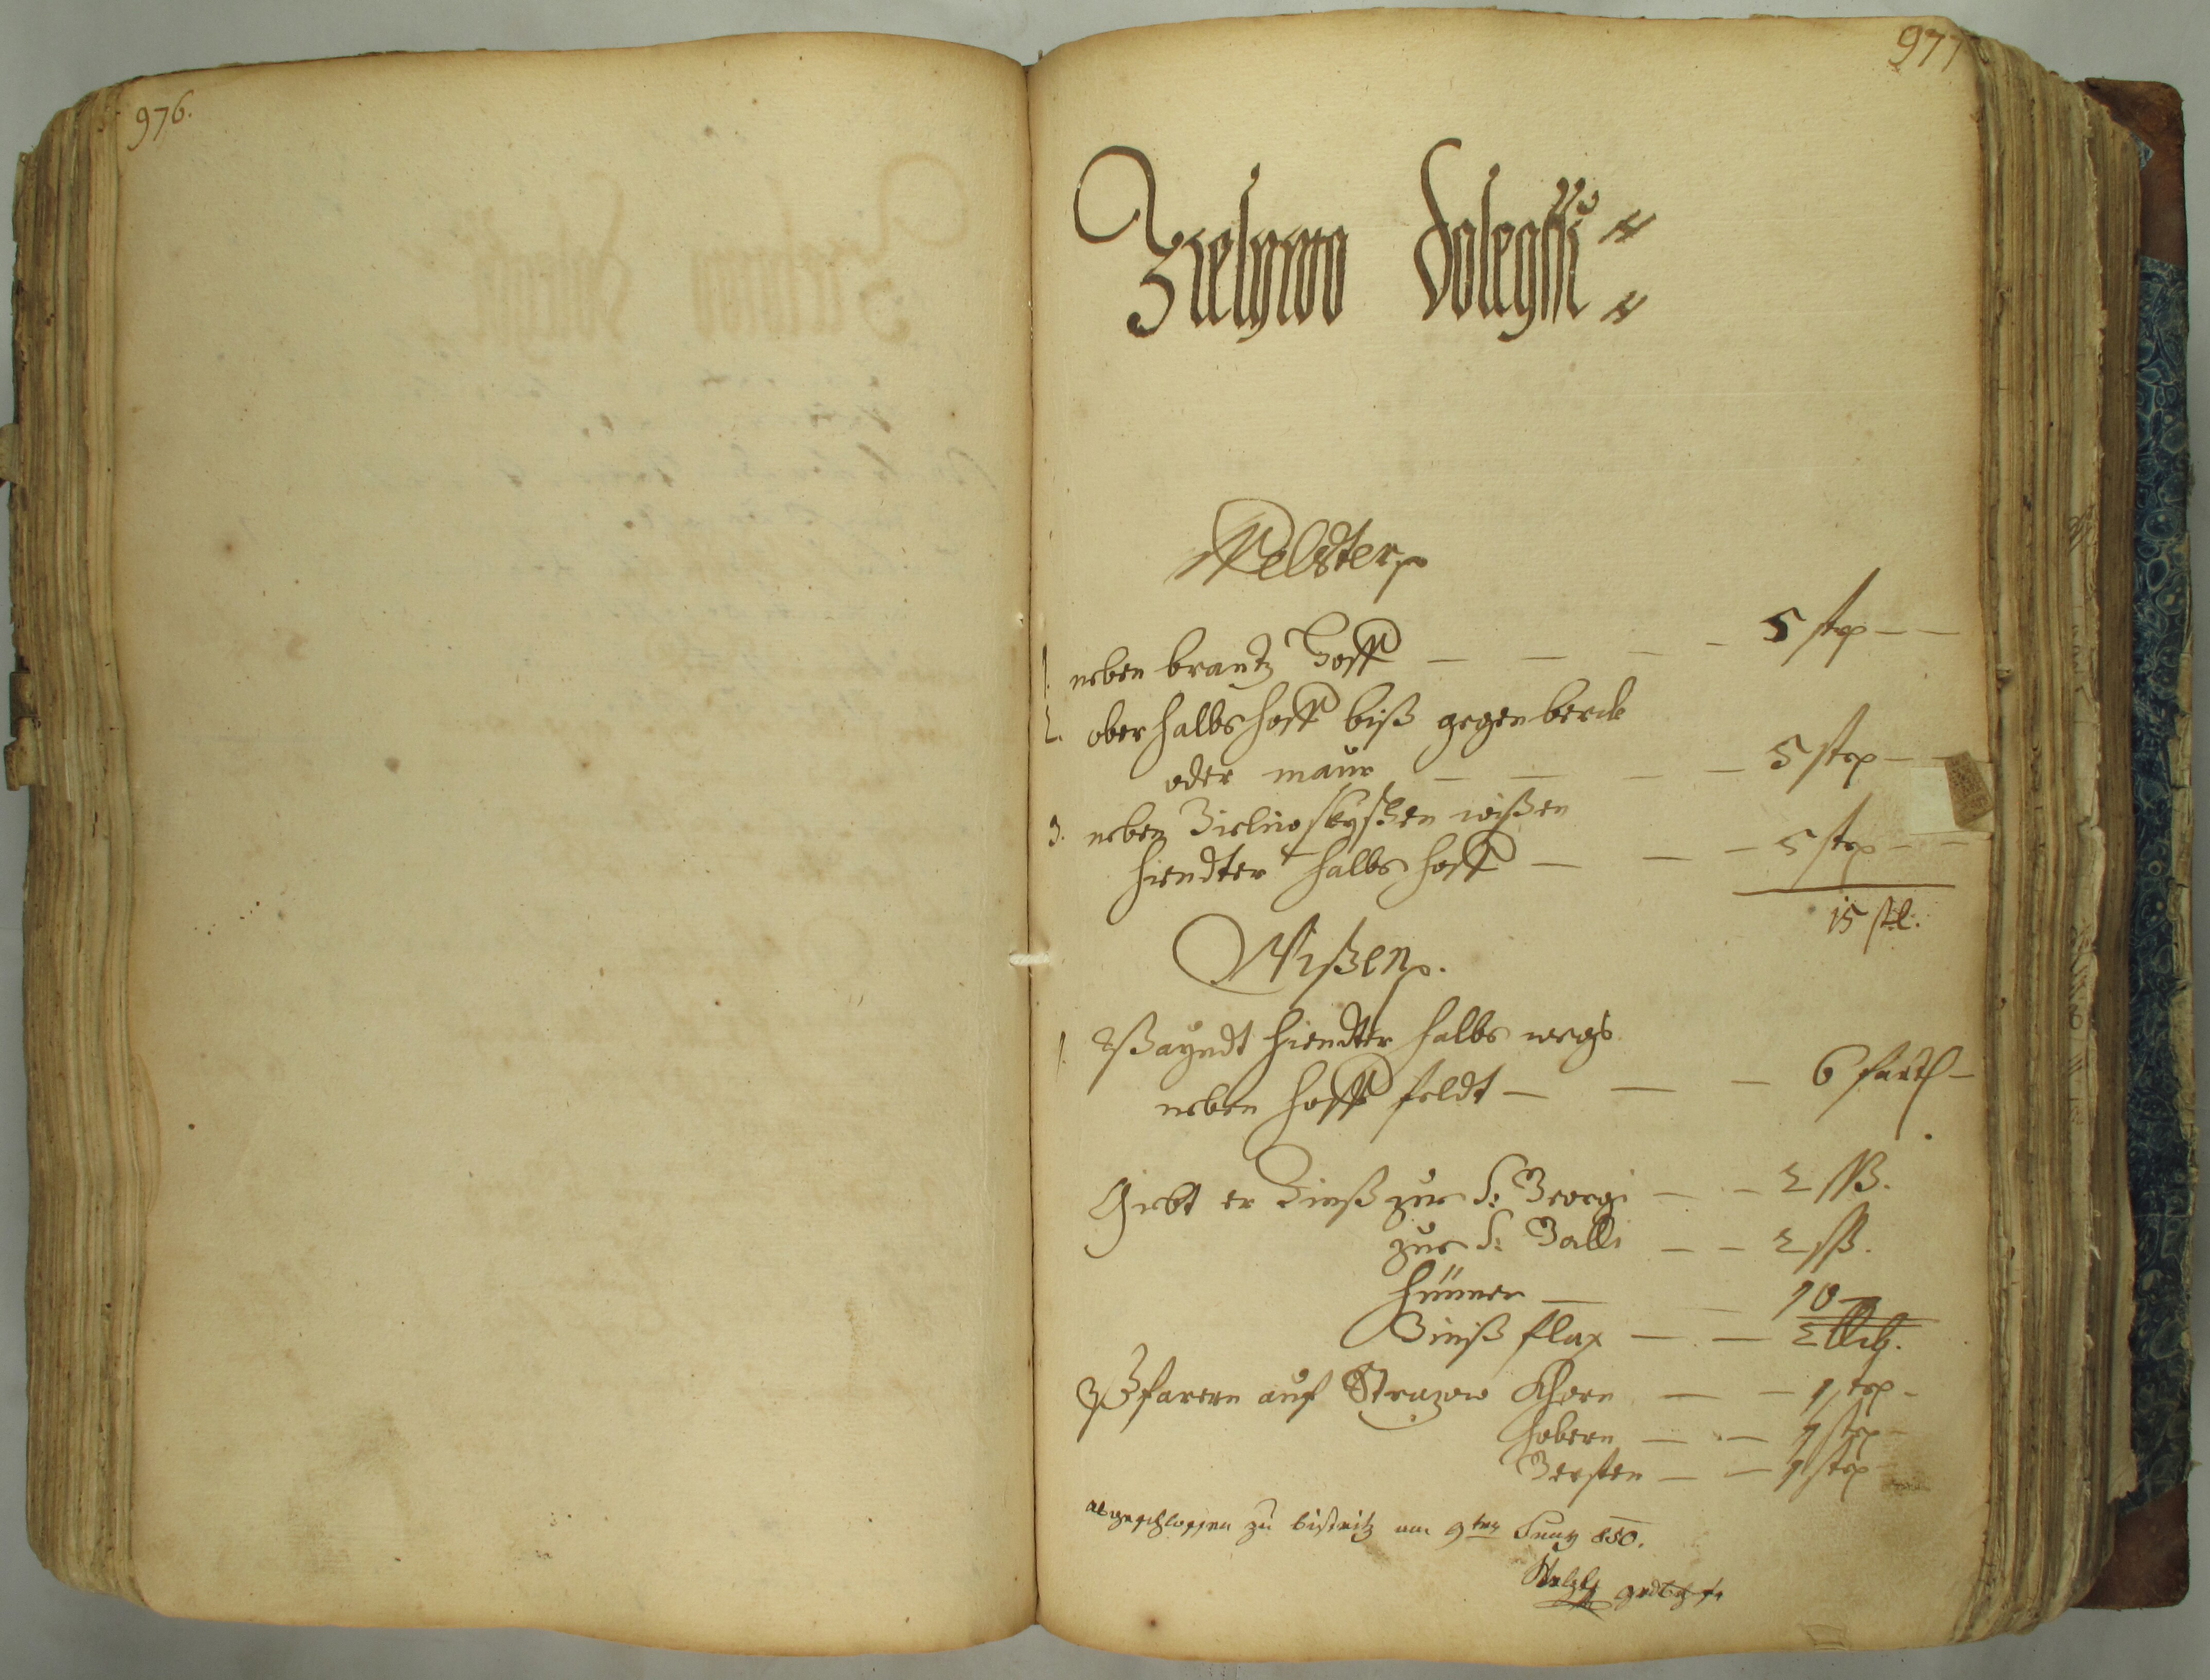 976.
977
Zielniwo Dolegssi
Velder
1. neben brantz Hoff 5 stp
2. oberhalbs hoff biß gegen berck
oder maur 5 stp
3. neben Zielnioskyschen wißen
hiendter halbs hoff 5 stp
15 st:
Wißen.
1. hiendter halbs wegs
neben hoff feldt 6 fuert
Giebt er Zinß zur S: Georgi 2 ßß.
zur S: Galli 2 ßß.
hünner 10
Zinß flax 2
Pfarern auf Strazow Khorn 1 stp
habern 1 stp
Gersten 1 stp
abgeschlossen zu bistritz am 9ten Juny 850.